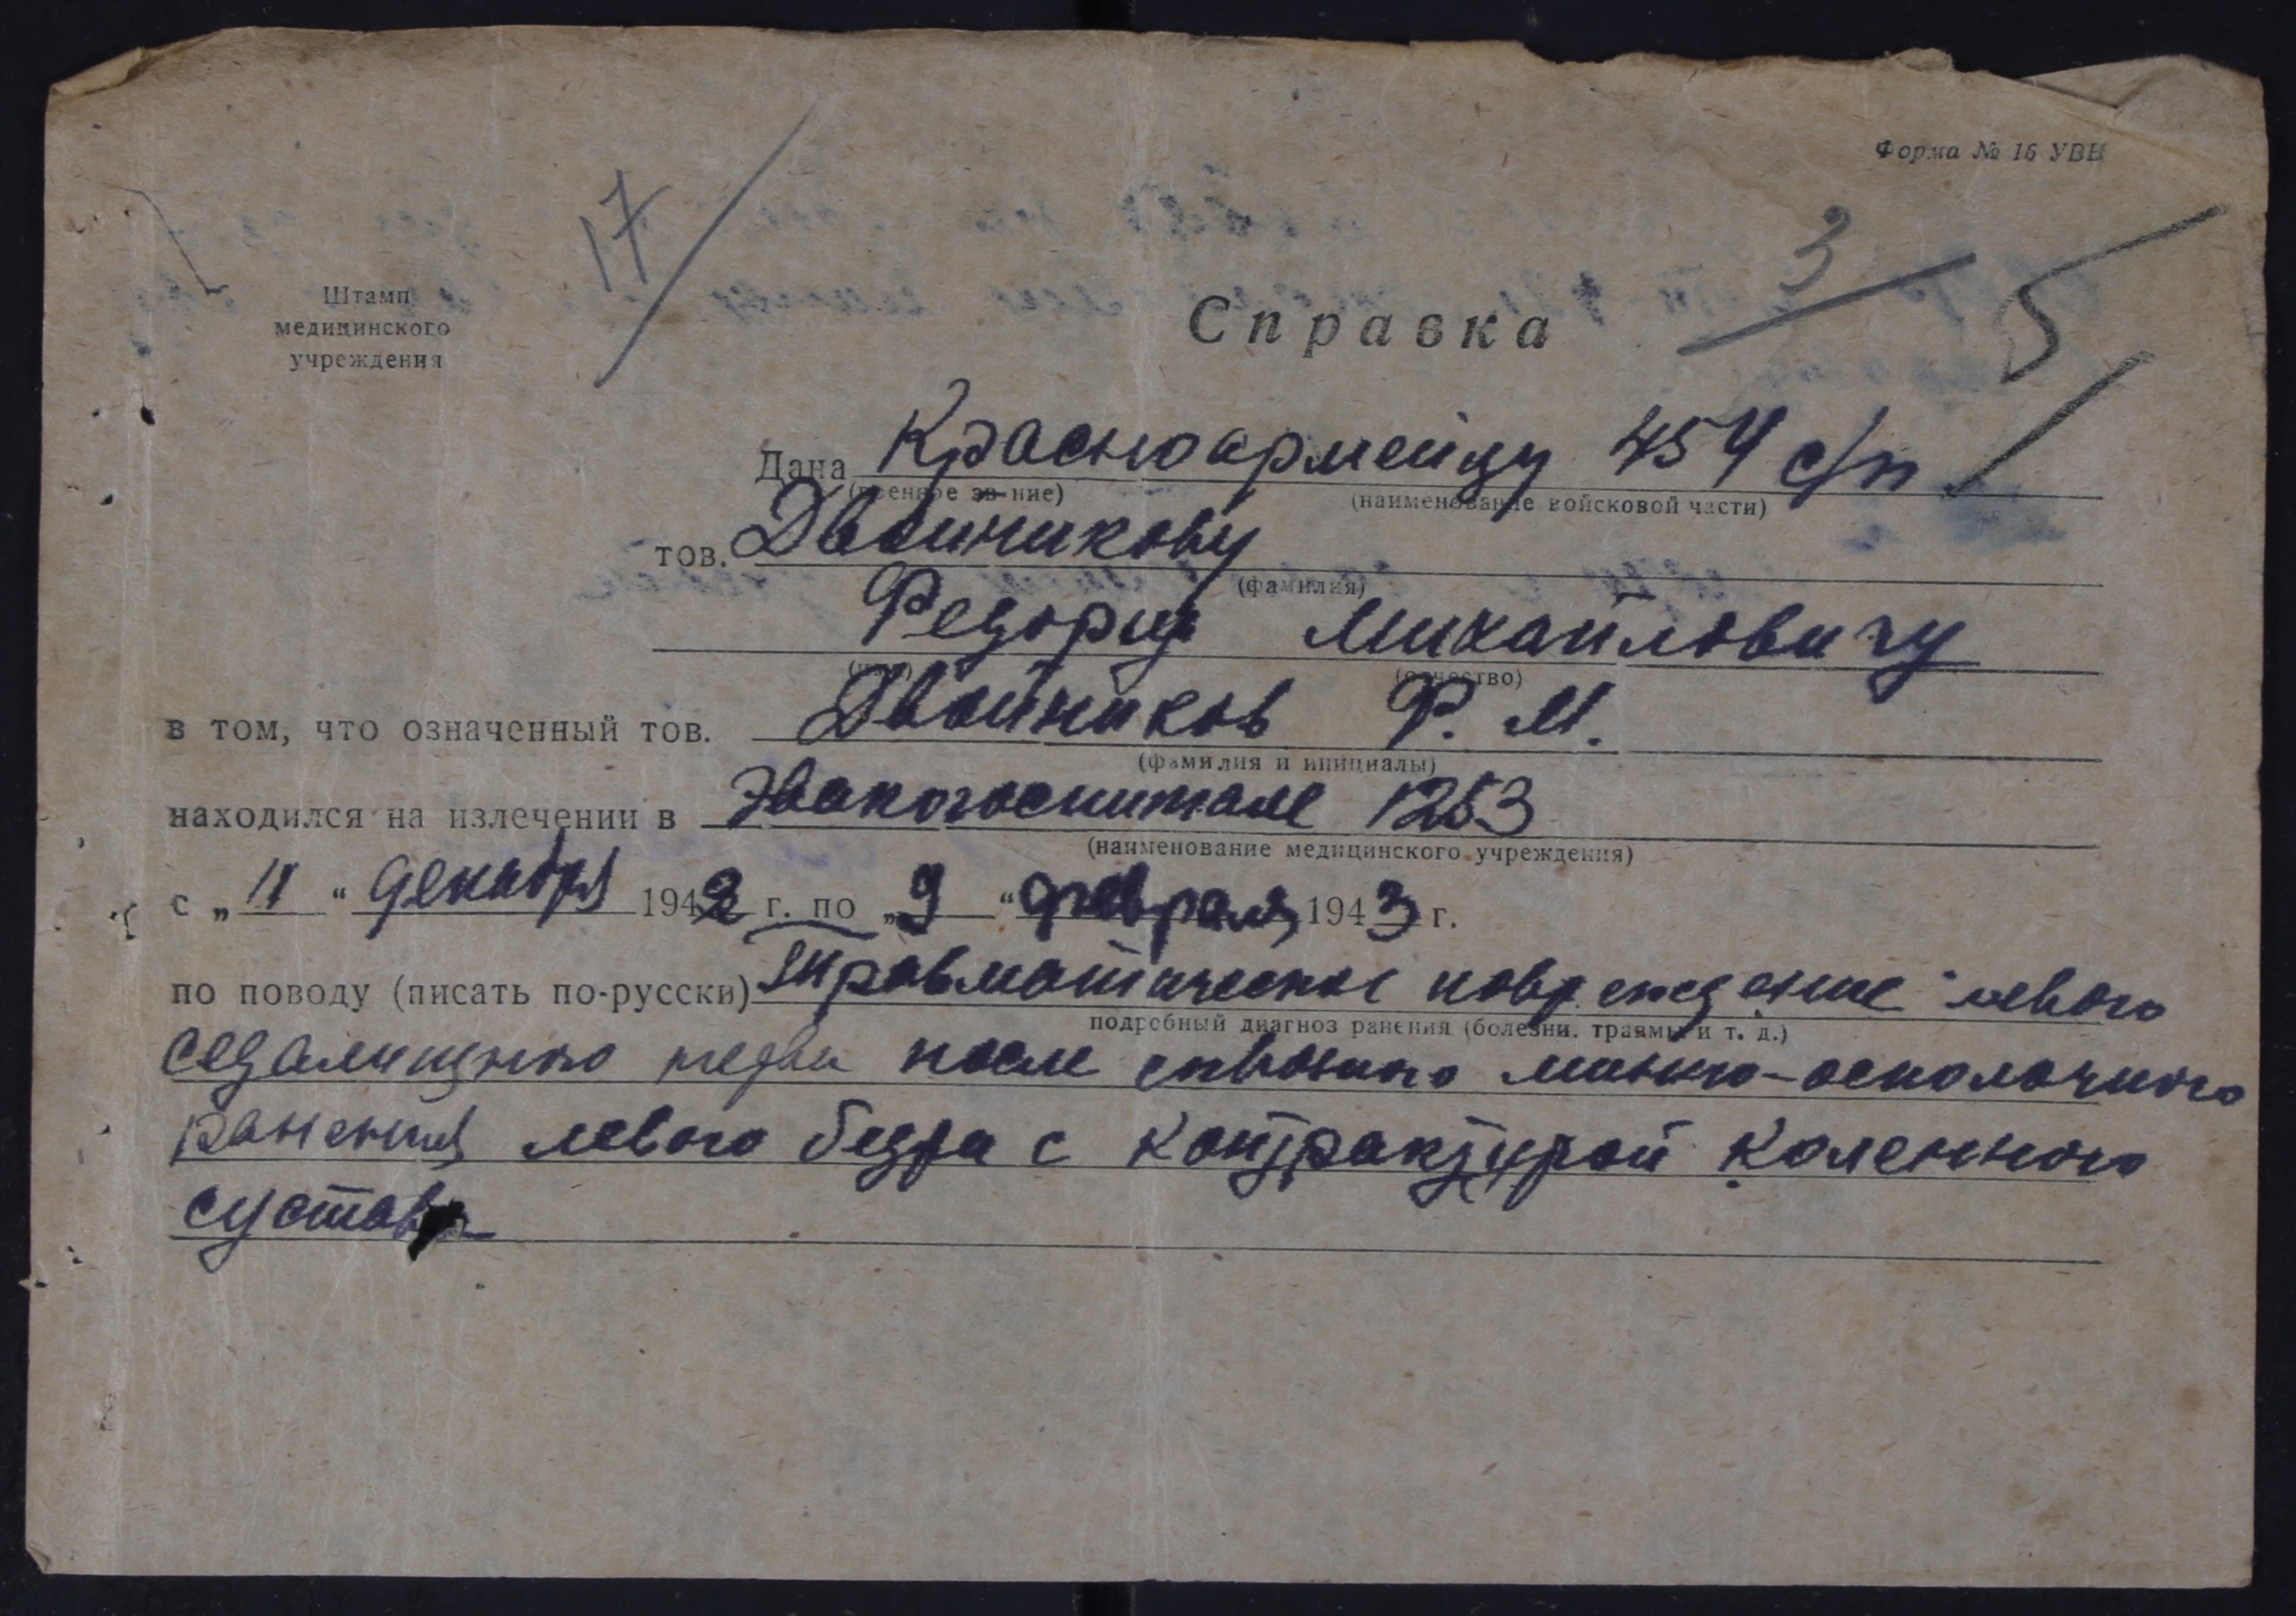 Форма № 16 УВН
17
3
5
Штамп
медицинского
учреждения
Справка
Дана Красноармейцу 454 с/п
(военное зв-ние) (наименование войсковой части)
тов. Двойникову
(фамилия)
Федору Михайловичу
(имя) (отчество)
в том, что означенный тов. Двойников Ф. М.
(фамилия и инициалы)
находился на излечении в Эвакогоспитале 1253
(наименование медицинского учреждения)
с „11“ декабря 1942 г. по „9“ февраля 1943 г.
по поводу (писать по-русски) Травматическое повреждение левого
подробный диагноз ранения (болезни, травмы и т. д.)
седалищного нерва после сквозного минно-осколочного
ранения левого бедра с контрактурой коленного
сустава